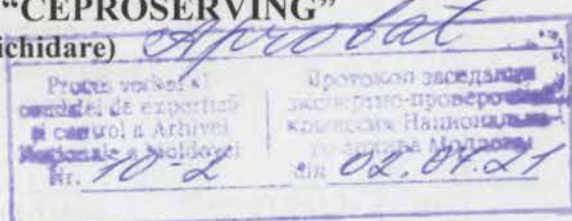 “CEPROSERVING”
ichidare) Aprobat
Proces verbal al
comisiei de expertiză
și control a Arhivei
Naționale a Moldovei
Nr. 10-2
Протокол заседания
экспертно-проверочной
комиссии Национального
архива Молдовы
din 02.04.21